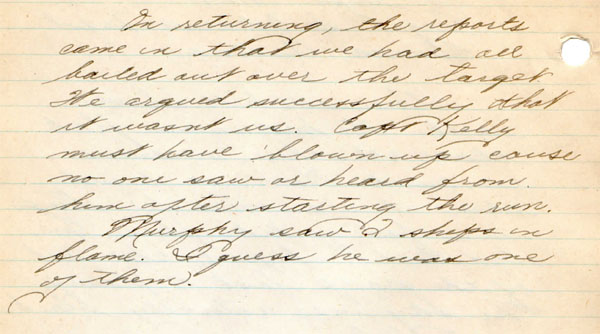 On returning, the reports
came in that we had all
bailed out over the target
We argued successfully that
it wasnt us. Capt Kelly
must have blown up cause
no one saw or heard from
him after starting the run.
Murphy saw 2 ships in
flame. I guess he was one
of them.